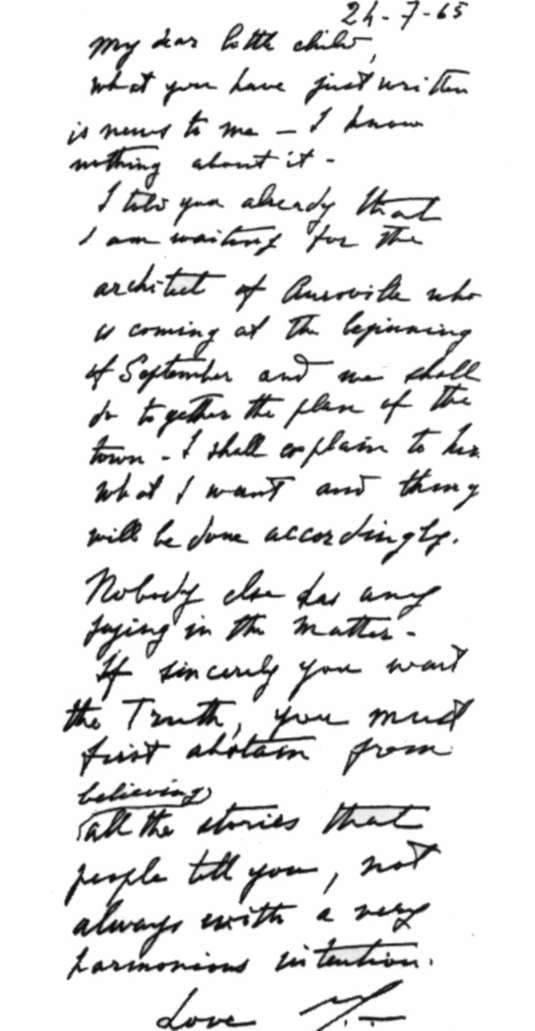 24-7-65
My dear little child,
what you have just written
is news to me – I know
nothing about it –
I told you already that
I am waiting for the
architect of Auroville who
is coming at the beginning
of September and we shall
do together the plan of the
town – I shall explain to him
what I want and things
will be done accordingly.
Nobody else has any
saying in the matter –
If sincerely you want
the Truth, you must
first abstain from
believing
all the stories that
people tell you, not
always with a very
harmonious intention.
Love